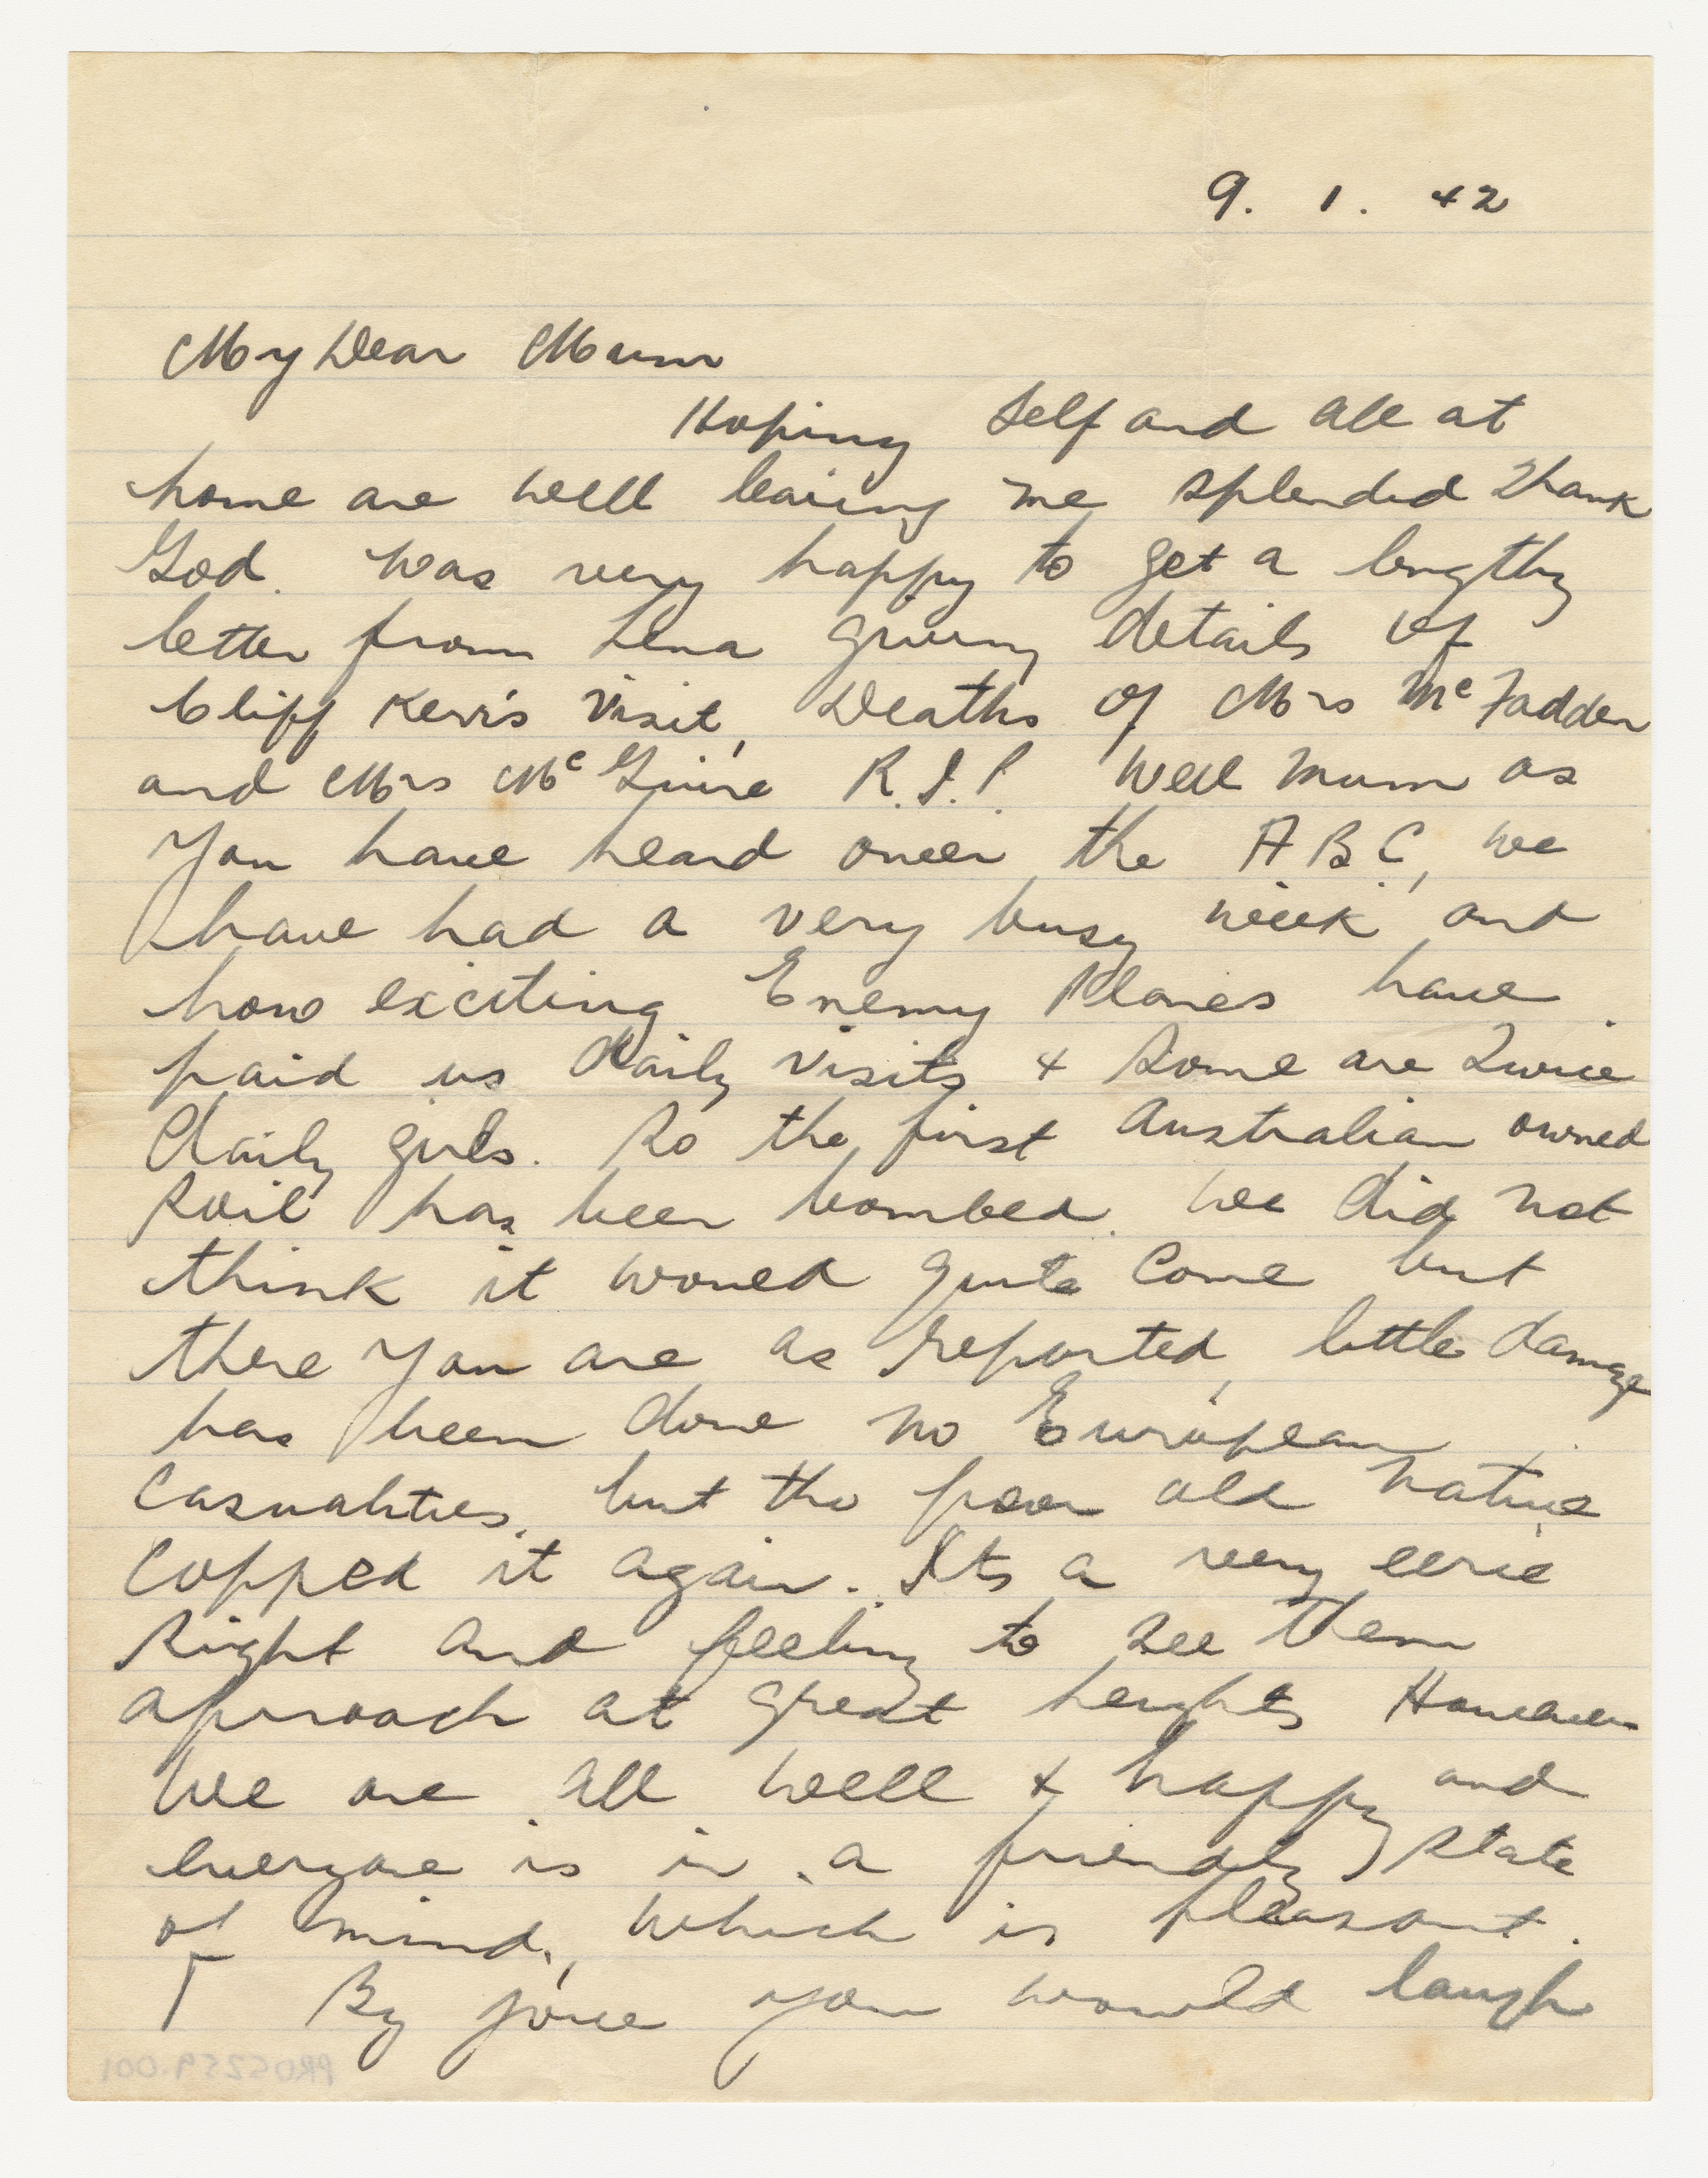 9. 1. 42
My Dear Mum
Hoping Self and all at
home are well leaving me splendid Thank
God. Was very happy to get a lengthy
letter from Lena giving details of
Cliff Kerr's Visit, Deaths of Mrs McFadden
and Mrs McGuire R.I.P. Well Mum as
You have heard over the A B C, we
have had a very busy week and
how exciting Enemy Planes have
paid us daily visits + some are Twice
daily girls. So the first Australian owned
Soil has been bombed. We did not
think it would quite come but
there You are as reported, little damage
has been done no European
Casualities, but the poor old native
Copped it again. Its a very eerie
Sight and feeling to see them
aproach at great heights However
We are all well & happy and
everyone is in a friendly state
of mind, which is pleasant.
By jove you would laugh
PR05259.001